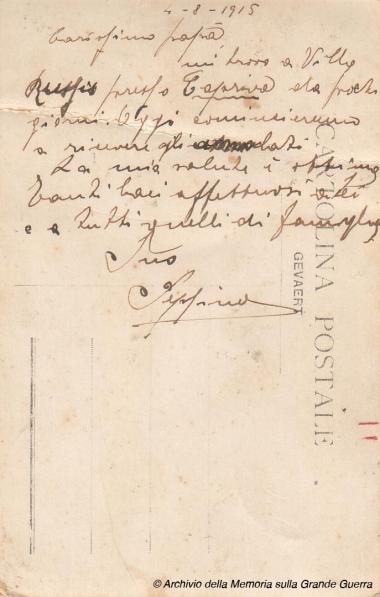 4-8-1915
Carissimo papà,
mi trovo a Villa
Russiz presso Capriva da pochi
giorni. Oggi cominciaremo
a ricevere gli
La mia salute è ottima
Tanti baci affettuosi a lei
e a tutti quelli di famiglia
Suo
Peppino
CARTOLINA POSTALE
GEVAERT
© Archivio della Memoria sulla Grande Guerra